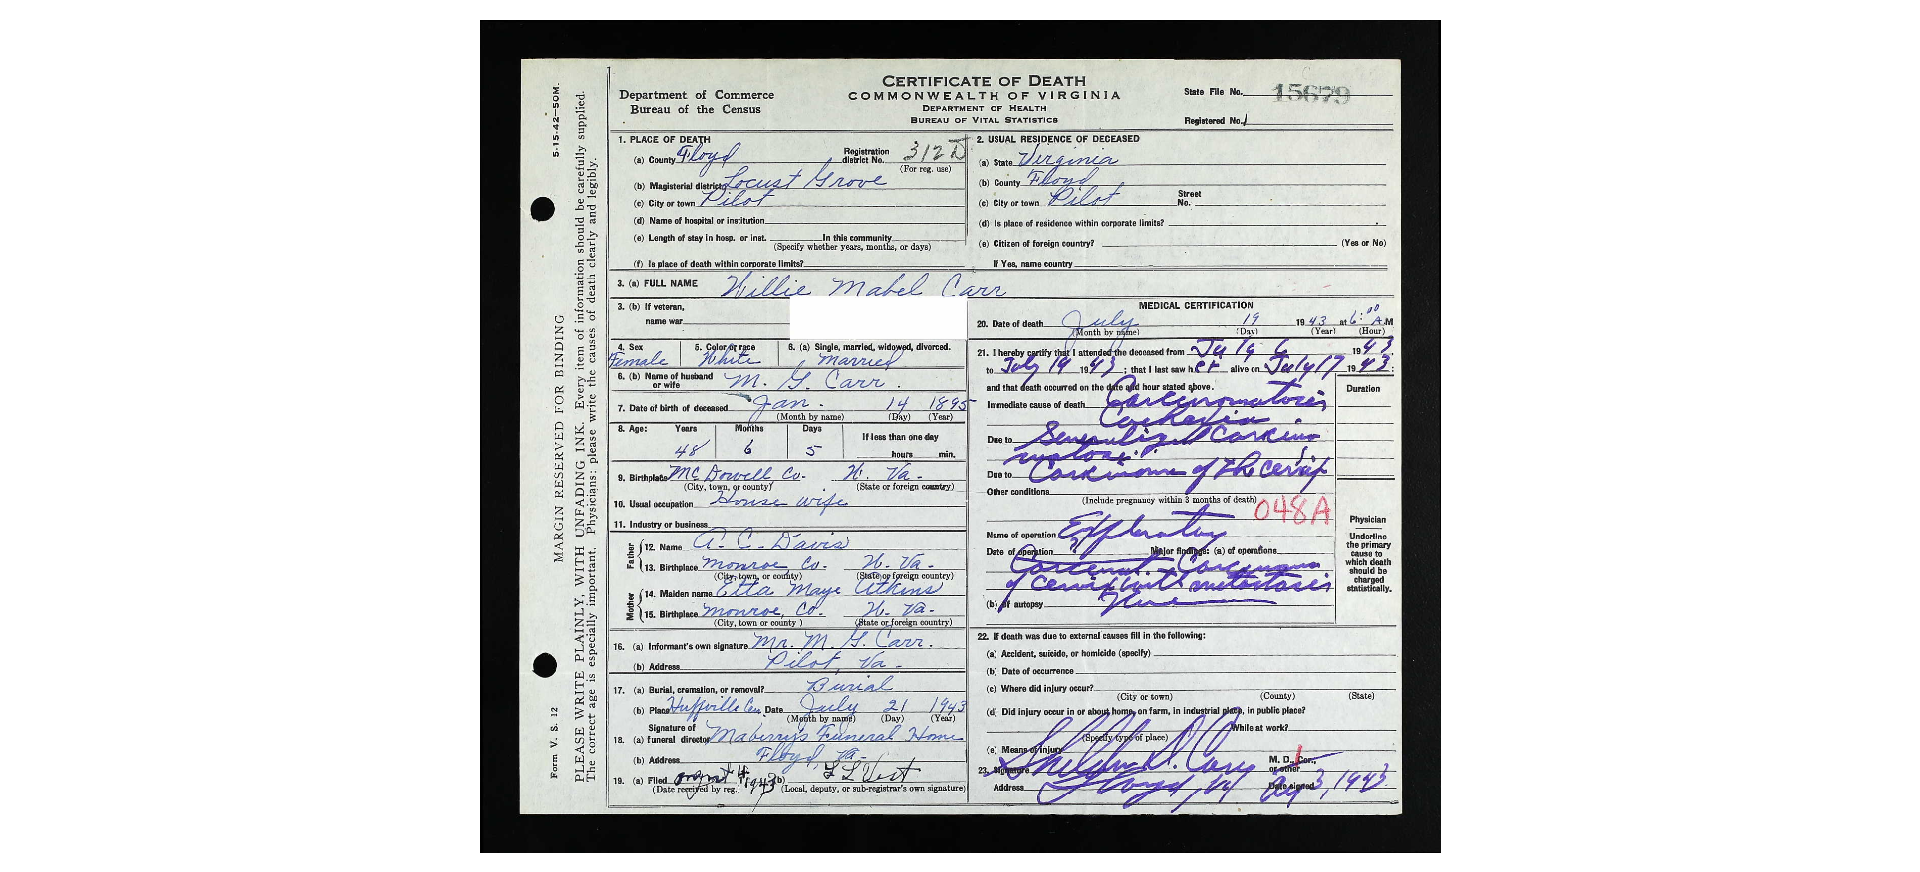 5-15-42—50M.
MARGIN RESERVED FOR BINDING
PLEASE WRITE PLAINLY, WITH UNFADING INK. Every item of information should be carefully supplied.
The correct age is especially important. Physicians: please write the causes of death clearly and legibly.
Form V. S. 12
Department of Commerce
Bureau of the Census
CERTIFICATE OF DEATH
COMMONWEALTH OF VIRGINIA
DEPARTMENT OF HEALTH
BUREAU OF VITAL STATISTICS
State File No. 15679
Registered No. 1
1. PLACE OF DEATH
(a) County Floyd Registration district No. 312D
(For reg. use)
(b) Magisterial district Locust Grove
(c) City or town Pilot
(d) Name of hospital or institution
(e) Length of stay in hosp. or inst. In this community
(Specify whether years, months, or days)
(f) Is place of death within corporate limits?
2. USUAL RESIDENCE OF DECEASED
(a) State Virginia
(b) County Floyd
(c) City or town Pilot Street No.
(d) Is place of residence within corporate limits?
(e) Citizen of foreign country? (Yes or No)
If Yes, name country
3. (a) FULL NAME Willie Mabel Carr
3. (b) If veteran,
name war
4. Sex Female
5. Color or race White
6. (a) Single, married, widowed, divorced. Married
6. (b) Name of husband or wife M. G. Carr.
7. Date of birth of deceased Jan. 14 1895
(Month by name) (Day) (Year)
8. Age: Years Months Days If less than one day
48 6 5 hours min.
9. Birthplace McDowell Co. W. Va.
(City, town, or county) (State or foreign country)
10. Usual occupation House wife
11. Industry or business
Father
12. Name A. C. Davis
13. Birthplace Monroe Co. W. Va.
(City, town, or county) (State or foreign country)
Mother
14. Maiden name Etta Maye Atkins
15. Birthplace Monroe, Co. W. Va.
(City, town or county) (State or foreign country)
16. (a) Informant's own signature Mr. M. G. Carr.
(b) Address Pilot, Va.
17. (a) Burial, cremation, or removal? Burial
(b) Place Huffville Cem. Date July 21 1943
(Month by name) (Day) (Year)
18. (a) Signature of funeral director Maberry's Funeral Home
(b) Address Floyd, Va.
19. (a) Filed August 4 1943 (b) L Vest
(Date received by reg.) (Local, deputy, or sub-registrar's own signature)
MEDICAL CERTIFICATION
20. Date of death July 19 1943 at 6:00 A.M
(Month by name) (Day) (Year) (Hour)
21. I hereby certify that I attended the deceased from July 6 1943
to July 19 1943; that I last saw her alive on July 17 1943;
and that death occurred on the date and hour stated above. Duration
Immediate cause of death Carcinomatosis
Cachexia
Due to Generalized Carcino
matosis
Due to Carcinoma of the cervix
Other conditions
(Include pregnancy within 3 months of death)
048A
Name of operation Exploratory
Date of operation Major findings: (a) of operations
Carcinoma
of cervix with metastasis
(b) of autopsy None
Physician
Underline the primary cause to which death should be charged statistically.
22. If death was due to external causes fill in the following:
(a) Accident, suicide, or homicide (specify)
(b) Date of occurrence
(c) Where did injury occur?
(City or town) (County) (State)
(d) Did injury occur in or about home, on farm, in industrial place, in public place?
While at work?
(Specify type of place)
(e) Means of injury
23. Signature M. D., Cor., or other
Address Floyd, Va Date signed Aug 3, 1943